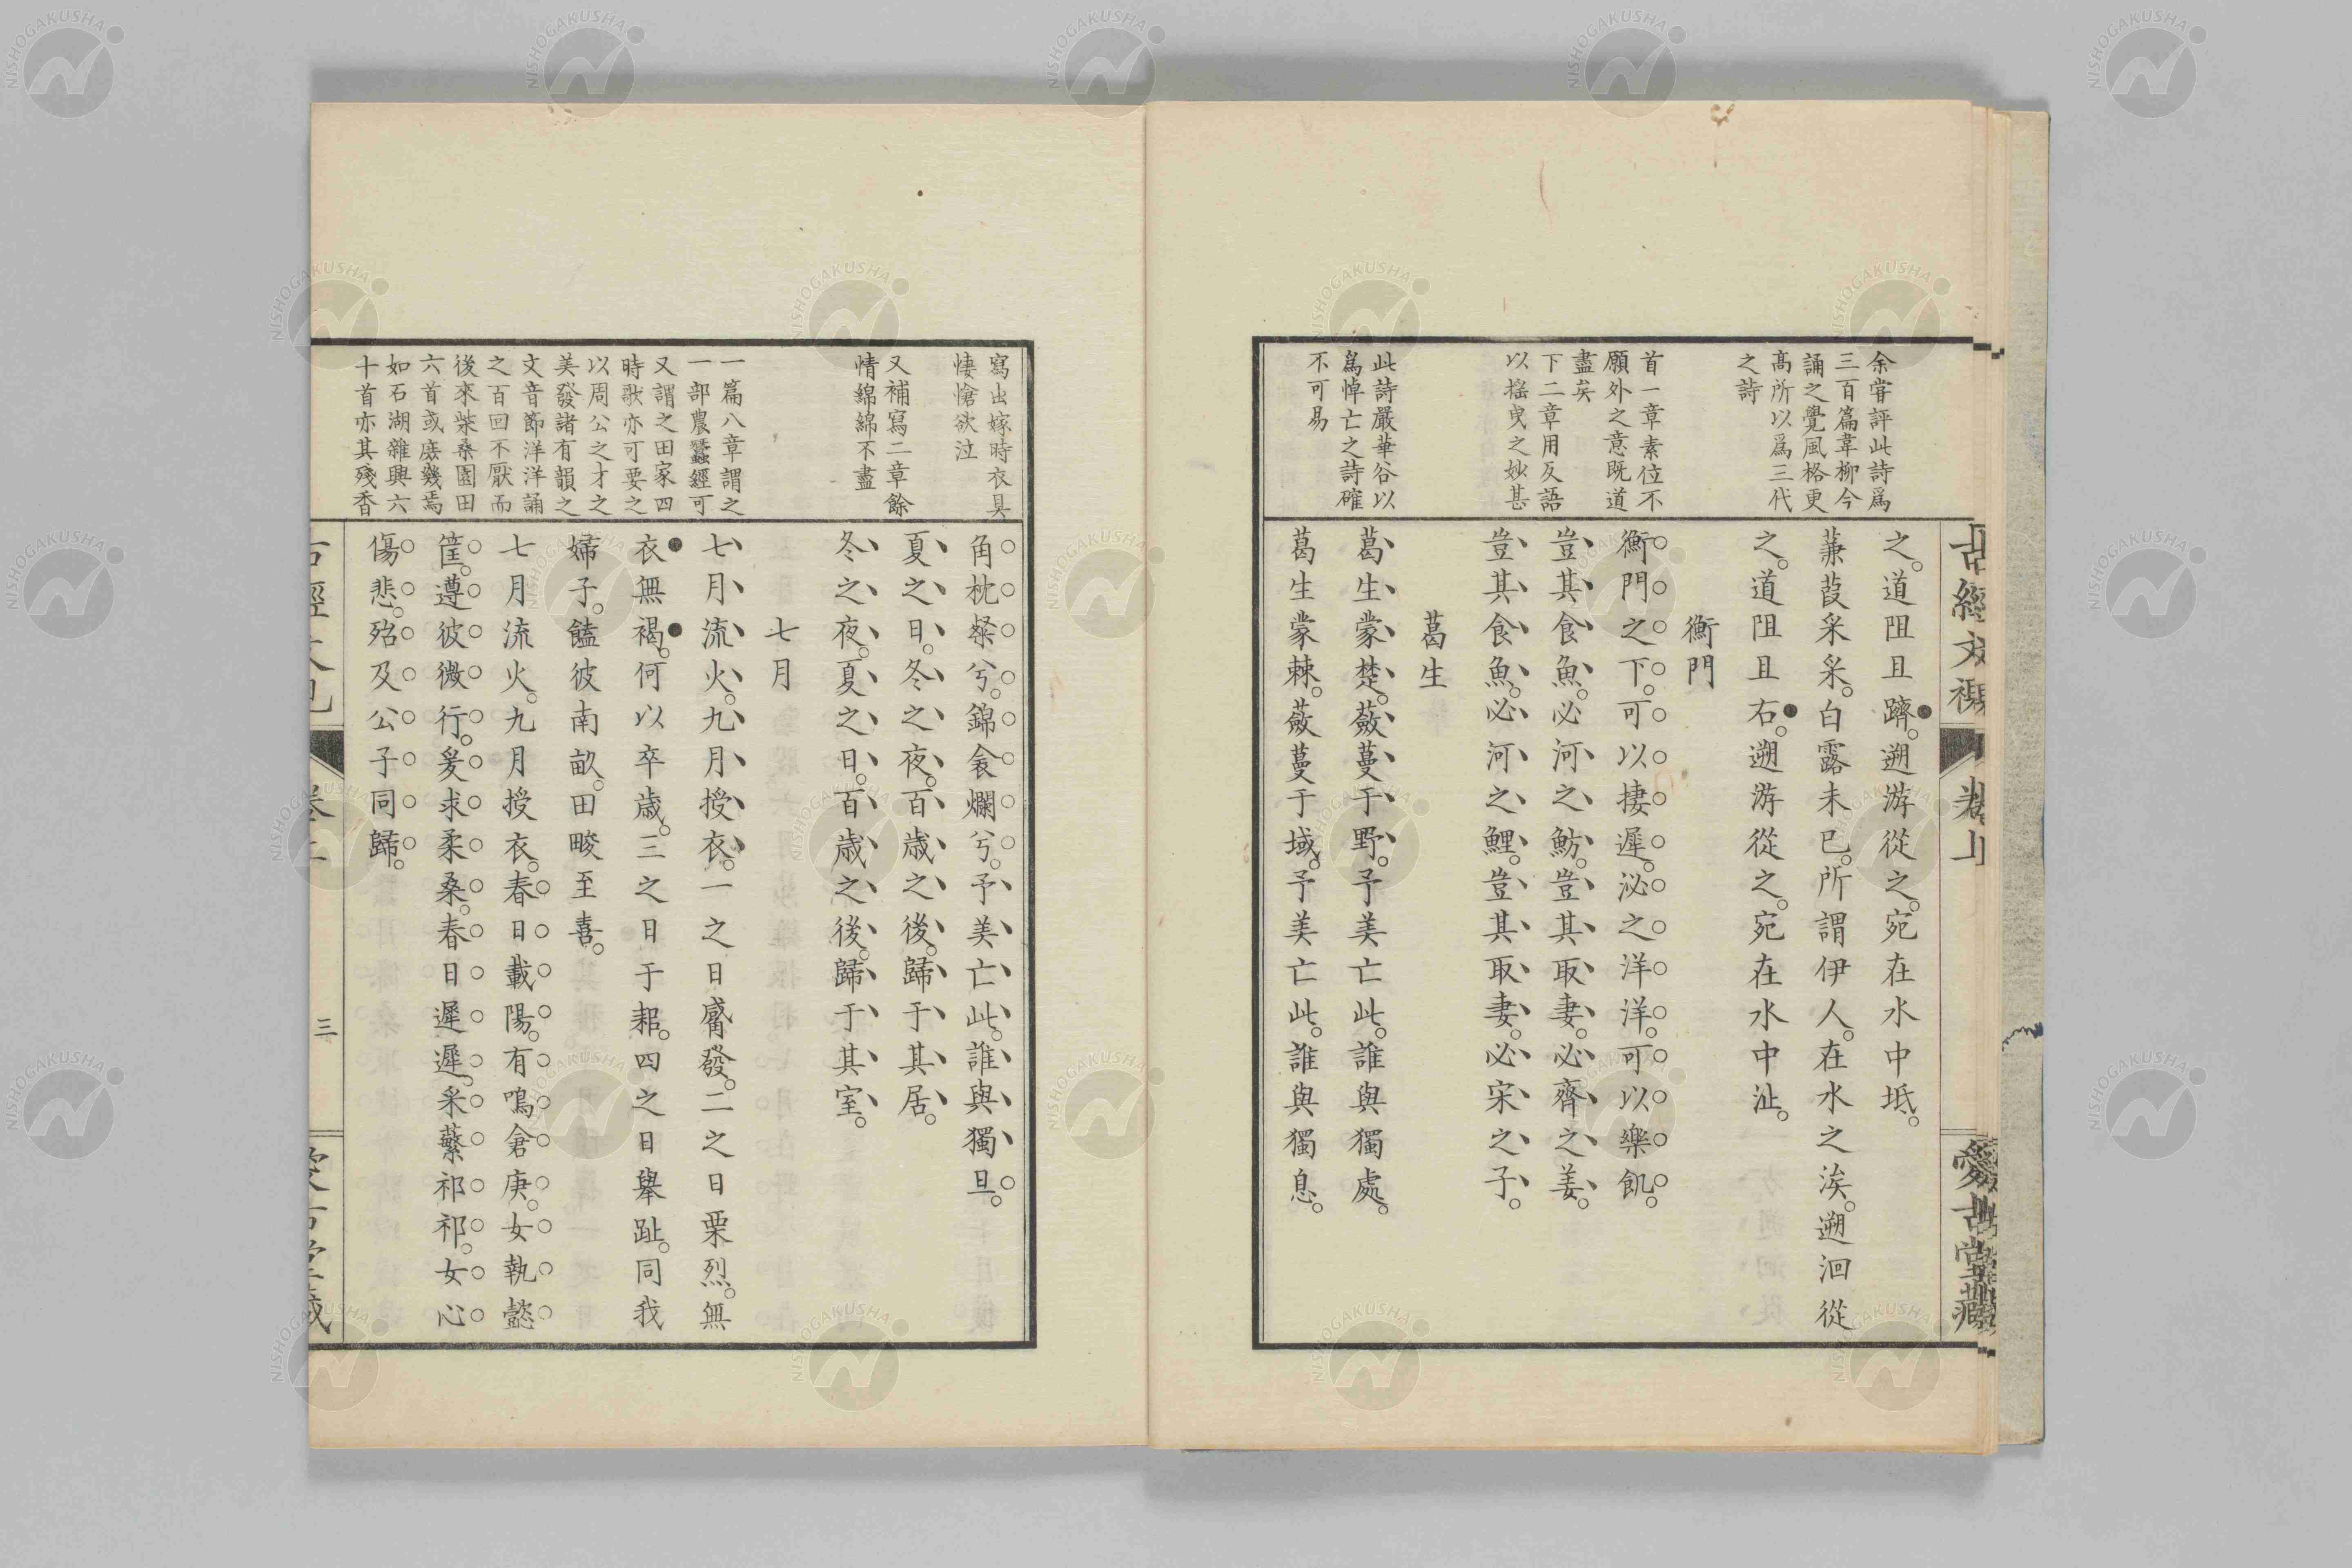 古經文視
卷上
愛古堂藏
余甞評此詩爲
三百篇韋柳今
誦之覺風格更
髙所以爲三代
之詩
首一章素位不
願外之意既道
盡矣
下二章用反語
以揺曳之妙甚
此詩嚴華谷以
爲悼亡之詩確
不可易
之。道阻且躋。遡游從之。宛在水中坻。
蒹葭采采。白露未已。所謂伊人。在水之涘。遡洄從
之。道阻且右。遡游從之。宛在水中沚。
衡門
衡門之下。可以棲遲。泌之洋洋。可以樂飢。
豈其食魚。必河之魴。豈其取妻。必齊之姜。
豈其食魚。必河之鯉。豈其取妻。必宋之子。
葛生
葛生蒙楚。蘞蔓于野。予美亡此。誰與獨處。
葛生蒙棘。蘞蔓于域。予美亡此。誰與獨息。
寫出嫁時衣具
悽愴欲泣
又補寫二章餘
情綿綿不盡
一篇八章謂之
一部農蠶經可
又謂之田家四
時歌亦可要之
以周公之才之
美發諸有韻之
文音節洋洋誦
之百回不厭而
後來柴桑園田
六首或庶幾焉
如石湖雜興六
十首亦其殘香
角枕粲兮。錦衾爛兮。予美亡此。誰與獨旦。
夏之日。冬之夜。百歳之後。歸于其居。
冬之夜。夏之日。百歳之後。歸于其室。
七月
七月流火。九月授衣。一之日觱發。二之日栗烈。無
衣無褐。何以卒歳。三之日于耜。四之日舉趾。同我
婦子。饁彼南畝。田畯至喜。
七月流火。九月授衣。春日載陽。有鳴倉庚。女執懿
筐。遵彼微行。爰求柔桑。春日遲遲。采蘩祁祁。女心
傷悲。殆及公子同歸。
三
NISHOGAKUSHA